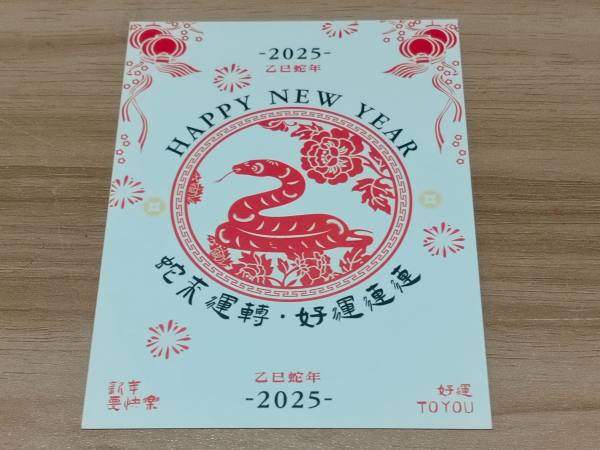 -2025-
乙巳蛇年
HAPPY NEW YEAR
蛇來運轉·好運蓮蓮
乙巳蛇年
-2025-
新年
要快樂
好運
TO YOU